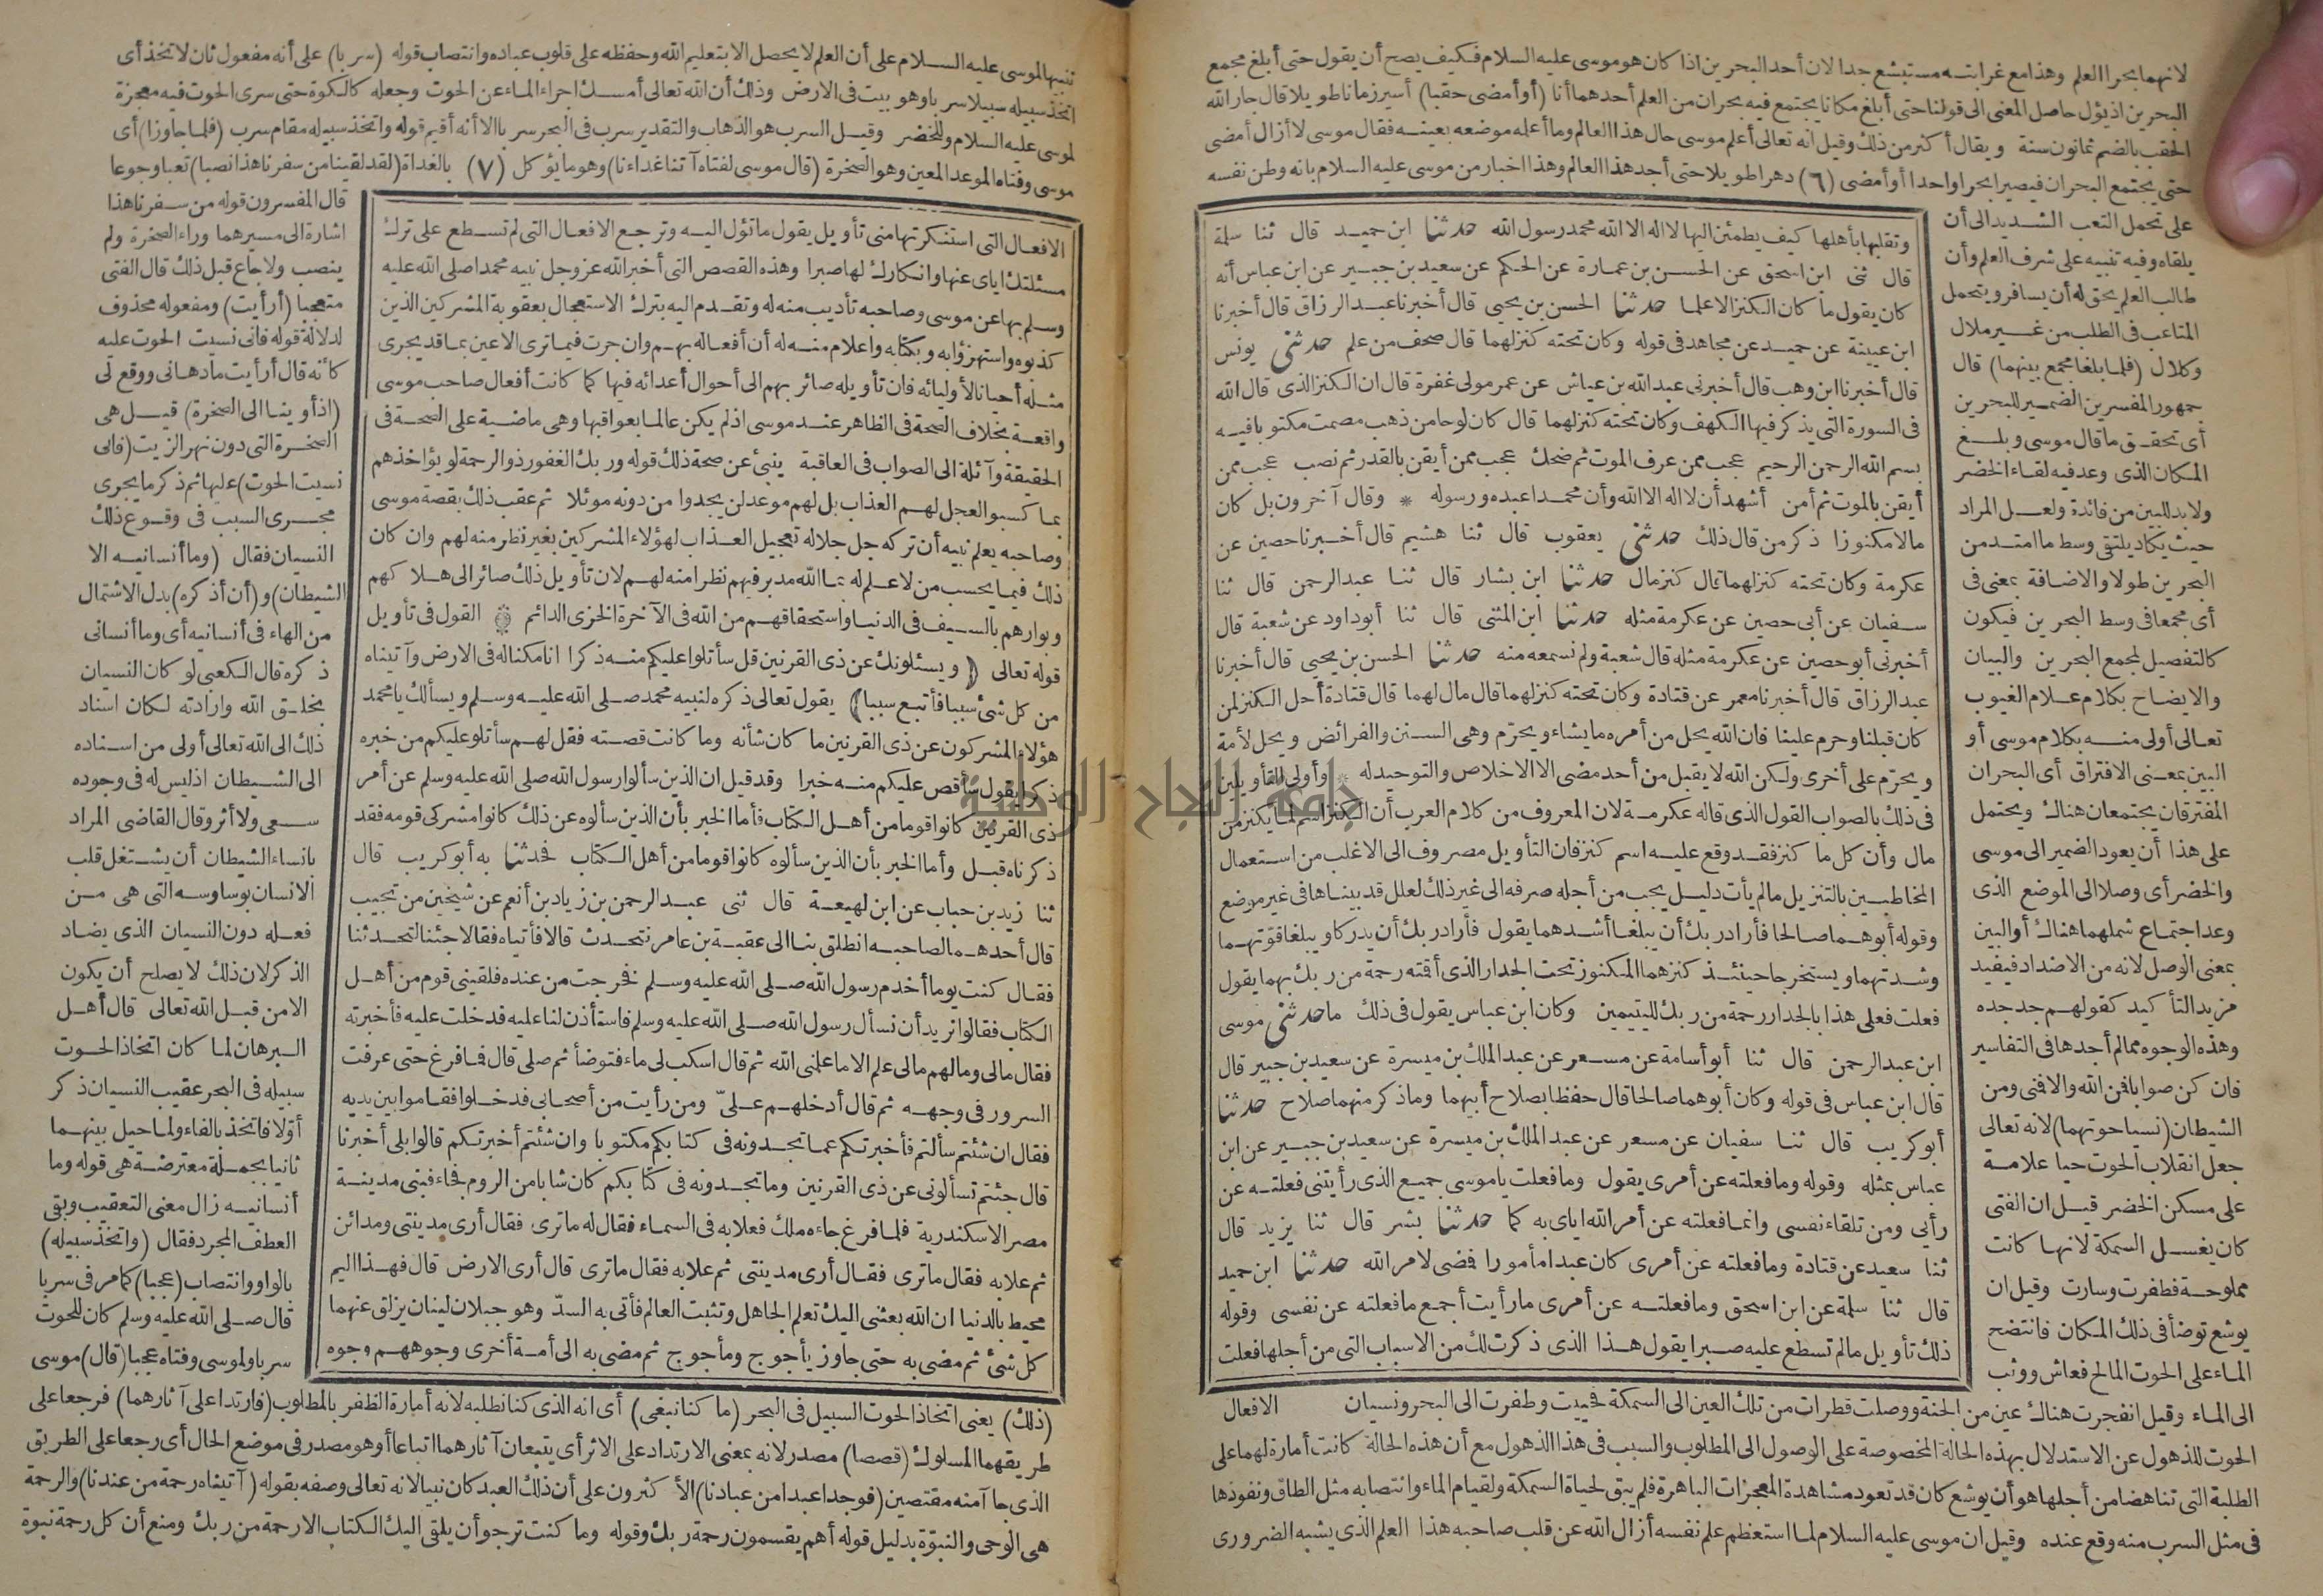 لانهما بحرا العلم وهذا مع غرابته مستبشع جدا لان أحد البحرين اذا كان هو موسى عليه السلام فكيف يصح أن يقول حتى أبلغ مجمع
البحرين اذ يؤل حاصل المعنى الى قولنا حتى أبلغ مكانا يجتمع فيه بحران من العلم أحدهما أنا (أو أمضى حقبا) أسير زمانا طويلا قال جار الله
الحقب بالضم ثمانون سنة ويقال أكثر من ذلك وقيل انه تعالى أعلم موسى حال هذا العالم وما أعلمه موضعه بعينه فقال موسى لا أزال أمضى
حتى يجتمع البحران فيصيرا بحرا واحدا أو أمضى (٦) دهرا طويلا حتى أجد هذا العالم وهذا اخبار من موسى عليه السلام بانه وطن نفسه
على تحمل التعب الشديد الى أن
يلقاه وفيه تنبيه على شرف العلم وأن
طالب العلم يحق له أن يسافر ويتحمل
المتاعب فى الطلب من غير ملال
وكلال (فلما بلغا مجمع بينهما) قال
جمهور المفسرين الضمير للبحرين
أى تحقق ما قال موسى وبلغ
المكان الذى وعد فيه لقاء الخضر
ولا بد للبين من فائدة ولعل المراد
حيث يكاد يلتقى وسط ما امتد من
البحرين طولا والاضافة بمعنى فى
أى مجمعا فى وسط البحرين فيكون
كالتفصيل لمجمع البحرين والبيان
والايضاح بكلام علام الغيوب
تعالى أولى منه بكلام موسى أو
البين بمعنى الافتراق أى البحران
المفترقان يجتمعان هناك ويحتمل
على هذا أن يعود الضمير الى موسى
والخضر أى وصلا الى الموضع الذى
وعد اجتماع شملهما هناك أو البين
بمعنى الوصل لانه من الاضداد فيفيد
مزيد التأكيد كقولهم جد جده
وهذه الوجوه مما لم أجدها فى التفاسير
فان كن صوابا فمن الله والا فمنى ومن
الشيطان (نسيا حوتهما) لانه تعالى
جعل انقلاب الحوت حيا علامة
على مسكن الخضر قيل ان الفتى
كان يغسل السمكة لانها كانت
مملوحة فطفرت وسارت وقيل ان
يوشع توضأ فى ذلك المكان فانتضح
الماء على الحوت المالح فعاش ووثب
وتقلبها بأهلها كيف يطمئن اليها لا اله الا الله محمد رسول الله حدثنا ابن حميد قال ثنا سلمة
قال ثنى ابن اسحق عن الحسن بن عمارة عن الحكم عن سعيد بن جبير عن ابن عباس أنه
كان يقول ما كان الكنز الا علما حدثنا الحسن بن يحيى قال أخبرنا عبد الرزاق قال أخبرنا
ابن عيينة عن حميد عن مجاهد فى قوله وكان تحته كنز لهما قال صحف من علم حدثنى يونس
قال أخبرنا ابن وهب قال أخبرنى عبد الله بن عياش عن عمر مولى غفرة قال ان الكنز الذى قال الله
فى السورة التى يذكر فيها الكهف وكان تحته كنز لهما قال كان لوحا من ذهب مصمت مكتوبا فيه
بسم الله الرحمن الرحيم عجب ممن عرف الموت ثم ضحك عجب ممن أيقن بالقدر ثم نصب عجب ممن
أيقن بالموت ثم أمن أشهد أن لا اله الا الله وأن محمدا عبده ورسوله * وقال آخرون بل كان
مالا مكنوزا ذكر من قال ذلك حدثنى يعقوب قال ثنا هشيم قال أخبرنا حصين عن
عكرمة وكان تحته كنز لهما قال كنز مال حدثنا ابن بشار قال ثنا عبد الرحمن قال ثنا
سفيان عن أبى حصين عن عكرمة مثله حدثنا ابن المثنى قال ثنا أبو داود عن شعبة قال
أخبرنى أبو حصين عن عكرمة مثله قال شعبة ولم نسمعه منه حدثنا الحسن بن يحيى قال أخبرنا
عبد الرزاق قال أخبرنا معمر عن قتادة وكان تحته كنز لهما قال مال لهما قال قتادة أحل الكنز لمن
كان قبلنا وحرم علينا فان الله يحل من أمره ما يشاء ويحرّم وهى السنن والفرائض ويحل لأمة
ويحرّم على أخرى ولكن الله لا يقبل من أحد مضى الا الاخلاص والتوحيد له * وأولى التأويلين
فى ذلك بالصواب القول الذى قاله عكرمة لان المعروف من كلام العرب أن الكنز اسم لما يكنز من
مال وأن كل ما كنز فقد وقع عليه اسم كنز فان التأويل مصروف الى الاغلب من استعمال
المخاطبين بالتنزيل ما لم يأت دليل يجب من أجله صرفه الى غير ذلك لعلل قد بيناها فى غير موضع
وقوله أبوهما صالحا فأراد ربك أن يبلغا أشدهما يقول فأراد ربك أن يدركا ويبلغا قوتهما
وشدتهما ويستخرجا حينئذ كنزهما المكنوز تحت الجدار الذى أقمته رحمة من ربك بهما يقول
فعلت فعلى هذا بالجدار رحمة من ربك لليتيمين وكان ابن عباس يقول فى ذلك ما حدثنى موسى
ابن عبد الرحمن قال ثنا أبو أسامة عن مسعر عن عبد الملك بن ميسرة عن سعيد بن جبير قال
قال ابن عباس فى قوله وكان أبوهما صالحا قال حفظا بصلاح أبيهما وما ذكر منهما صلاح حدثنا
أبو كريب قال ثنا سفيان عن مسعر عن عبد الملك بن ميسرة عن سعيد بن جبير عن ابن
عباس بمثله وقوله وما فعلته عن أمرى يقول وما فعلت يا موسى جميع الذى رأيتنى فعلته عن
رأيى ومن تلقاء نفسى وانما فعلته عن أمر الله اياى به كما حدثنا بشر قال ثنا يزيد قال
ثنا سعيد عن قتادة وما فعلته عن أمرى كان عبدا مأمورا فمضى لامر الله حدثنا ابن حميد
قال ثنا سلمة عن ابن اسحق وما فعلته عن أمرى ما رأيت أجمع ما فعلته عن نفسى وقوله
ذلك تأويل ما لم تسطع عليه صبرا يقول هذا الذى ذكرت لك من الاسباب التى من أجلها فعلت
الى الماء وقيل انفجرت هناك عين من الجنة ووصلت قطرات من تلك العين الى السمكة فحييت وطفرت الى البحر ونسيان الافعال
الحوت للذهول عن الاستدلال بهذه الحالة المخصوصة على الوصول الى المطلوب والسبب فى هذا الذهول مع أن هذه الحالة كانت أمارة لهما على
الطلبة التى تناهضا من أجلها هو أن يوشع كان قد تعود مشاهدة المعجزات الباهرة فلم يبق لحياة السمكة ولقيام الماء وانتصابه مثل الطاق ونفوذها
فى مثل السرب منه وقع عنده وقيل ان موسى عليه السلام لما استعظم علم نفسه أزال الله عن قلب صاحبه هذا العلم الذى يشبه الضرورى
تنبيها لموسى عليه السلام على أن العلم لا يحصل الا بتعليم الله وحفظه على قلوب عباده وانتصاب قوله (سربا) على أنه مفعول ثان لاتخذ أى
اتخذ سبيله سبيلا سربا وهو بيت فى الارض وذلك أن الله تعالى أمسك اجراء الماء عن الحوت وجعله كالكوة حتى سرى الحوت فيه معجزة
لموسى عليه السلام وللخضر وقيل السرب هو الذهاب والتقدير سرب فى البحر سربا الا أنه أقيم قوله واتخذ سبيله مقام سرب (فلما جاوزا) أى
موسى وفتاه الموعد المعين وهو الصخرة (قال موسى لفتاه آتنا غداءنا) وهو ما يؤكل (٧) بالغداة (لقد لقينا من سفرنا هذا نصبا) تعبا وجوعا
قال المفسرون قوله من سفرنا هذا
اشارة الى مسيرهما وراء الصخرة ولم
ينصب ولا جاع قبل ذلك قال الفتى
متعجبا (أرأيت) ومفعوله محذوف
لدلالة قوله فانى نسيت الحوت عليه
كأنه قال أرأيت ما دهانى ووقع لى
(اذ أوينا الى الصخرة) قيل هى
الصخرة التى دون نهر الزيت (فانى
نسيت الحوت) عليها ثم ذكر ما يجرى
مجرى السبب فى وقوع ذلك
النسيان فقال (وما أنسانيه الا
الشيطان) و(أن أذكره) بدل الاشتمال
من الهاء فى أنسانيه أى وما أنسانى
ذكره قال الكعبى لو كان النسيان
بخلق الله وارادته لكان اسناد
ذلك الى الله تعالى أولى من اسناده
الى الشيطان اذ ليس له فى وجوده
سعى ولا أثر وقال القاضى المراد
بانساء الشيطان أن يشتغل قلب
الانسان بوساوسه التى هى من
فعله دون النسيان الذى يضاد
الذكر لان ذلك لا يصلح أن يكون
الا من قبل الله تعالى قال أهل
البرهان لما كان اتخاذ الحوت
سبيله فى البحر عقيب النسيان ذكر
أوّلا فاتخذ بالفاء ولما حيل بينهما
ثانيا بجملة معترضة هى قوله وما
أنسانيه زال معنى التعقيب وبقى
العطف المجرد فقال (واتخذ سبيله)
بالواو وانتصاب (عجبا) كما مر فى سربا
قال صلى الله عليه وسلم كان للحوت
سربا ولموسى وفتاه عجبا (قال) موسى
الافعال التى استنكرتها منى تأويل يقول ما تؤل اليه وترجع الافعال التى لم تسطع على ترك
مسئلتك اياى عنها وانكارك لها صبرا وهذه القصص التى أخبر الله عز وجل نبيه محمدا صلى الله عليه
وسلم بها عن موسى وصاحبه تأديب منه له وتقدم اليه بترك الاستعجال بعقوبة المشركين الذين
كذبوه واستهزؤا به وبكتابه واعلام منه له أن أفعاله بهم وان جرت فيما ترى الاعين بما قد يجرى
مثله أحيانا لأوليائه فان تأويله صائر بهم الى أحوال أعدائه فيها كما كانت أفعال صاحب موسى
واقعة بخلاف الصحة فى الظاهر عند موسى اذ لم يكن عالما بعواقبها وهى ماضية على الصحة فى
الحقيقة وآئلة الى الصواب فى العاقبة ينبئ عن صحة ذلك قوله وربك الغفور ذو الرحمة لو يؤاخذهم
بما كسبوا لعجل لهم العذاب بل لهم موعد لن يجدوا من دونه موئلا ثم عقب ذلك بقصة موسى
وصاحبه يعلم نبيه أن تركه جل جلاله تعجيل العذاب لهؤلاء المشركين بغير نظر منه لهم وان كان
ذلك فيما يحسب من لا علم له بما الله مدبر فيهم نظرا منه لهم لان تأويل ذلك صائر الى هلاكهم
وبوارهم بالسيف فى الدنيا واستحقاقهم من الله فى الآخرة الخزى الدائم ۞ القول فى تأويل
قوله تعالى (ويسئلونك عن ذى القرنين قل سأتلو عليكم منه ذكرا انا مكنا له فى الارض وآتيناه
من كل شئ سببا فأتبع سببا) يقول تعالى ذكره لنبيه محمد صلى الله عليه وسلم ويسألك يا محمد
هؤلاء المشركون عن ذى القرنين ما كان شأنه وما كانت قصته فقل لهم سأتلو عليكم من خبره
ذكرا يقول سأقص عليكم منه خبرا وقد قيل ان الذين سألوا رسول الله صلى الله عليه وسلم عن أمر
ذى القرنين كانوا قوما من أهل الكتاب فأما الخبر بأن الذين سألوه عن ذلك كانوا مشركى قومه فقد
ذكرناه قبل وأما الخبر بأن الذين سألوه كانوا قوما من أهل الكتاب فحدثنا به أبو كريب قال
ثنا زيد بن حباب عن ابن لهيعة قال ثنى عبد الرحمن بن زياد بن أنعم عن شيخين من تجيب
قال أحدهما لصاحبه انطلق بنا الى عقبة بن عامر نتحدث قالا فأتياه فقالا جئنا لتحدثنا
فقال كنت يوما أخدم رسول الله صلى الله عليه وسلم فخرجت من عنده فلقينى قوم من أهل
الكتاب فقالوا نريد أن نسأل رسول الله صلى الله عليه وسلم فاستأذن لنا عليه فدخلت عليه فأخبرته
فقال مالى وما لهم مالى علم الا ما علمنى الله ثم قال اسكب لى ماء فتوضأ ثم صلى قال فما فرغ حتى عرفت
السرور فى وجهه ثم قال أدخلهم علىّ ومن رأيت من أصحابى فدخلوا فقاموا بين يديه
فقال ان شئتم سألتم فأخبرتكم عما تجدونه فى كتابكم مكتوبا وان شئتم أخبرتكم قالوا بلى أخبرنا
قال جئتم تسألونى عن ذى القرنين وما تجدونه فى كتابكم كان شابا من الروم فجاء فبنى مدينة
مصر الاسكندرية فلما فرغ جاءه ملك فعلا به فى السماء فقال له ما ترى فقال أرى مدينتى ومدائن
ثم علا به فقال ما ترى فقال أرى مدينتى ثم علا به فقال ما ترى قال أرى الارض قال فهذا اليم
محيط بالدنيا ان الله بعثنى اليك تعلم الجاهل وتثبت العالم فأتى به السدّ وهو جبلان لينان يزلق عنهما
كل شئ ثم مضى به حتى جاوز يأجوج ومأجوج ثم مضى به الى أمة أخرى وجوههم وجوه
(ذلك) يعنى اتخاذ الحوت السبيل فى البحر (ما كنا نبغى) أى انه الذى كنا نطلبه لانه أمارة الظفر بالمطلوب (فارتدا على آثارهما) فرجعا على
طريقهما المسلوك (قصصا) مصدر لانه بمعنى الارتداد على الاثر أى يتبعان آثارهما اتباعا أو هو مصدر فى موضع الحال أى رجعا على الطريق
الذى جاآ منه مقتصين (فوجدا عبدا من عبادنا) الأكثرون على أن ذلك العبد كان نبيا لانه تعالى وصفه بقوله (آتيناه رحمة من عندنا) والرحمة
هى الوحى والنبوّة بدليل قوله أهم يقسمون رحمة ربك وقوله وما كنت ترجو أن يلقى اليك الكتاب الا رحمة من ربك ومنع أن كل رحمة نبوة
جامعة النجاح الوطنية